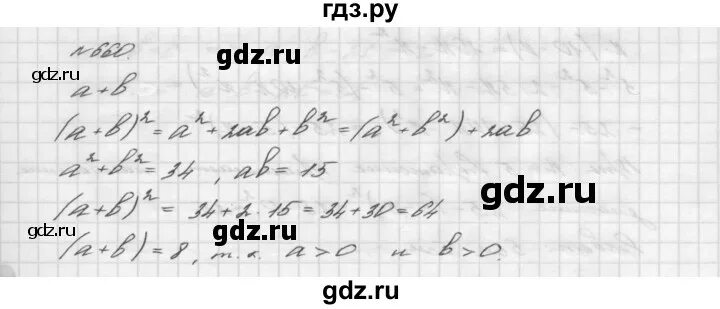 гдз.ру
№660.
a+b
(a+b)² = a²+2ab+b² = (a²+b²)+2ab
a²+b² = 34, ab = 15
(a+b)² = 34+2·15 = 34+30 = 64
(a+b) = 8, т.к. a>0 и b>0.
gdz.ru
gdz.ru
gdz.ru
gdz.ru
gdz.ru
gdz.ru